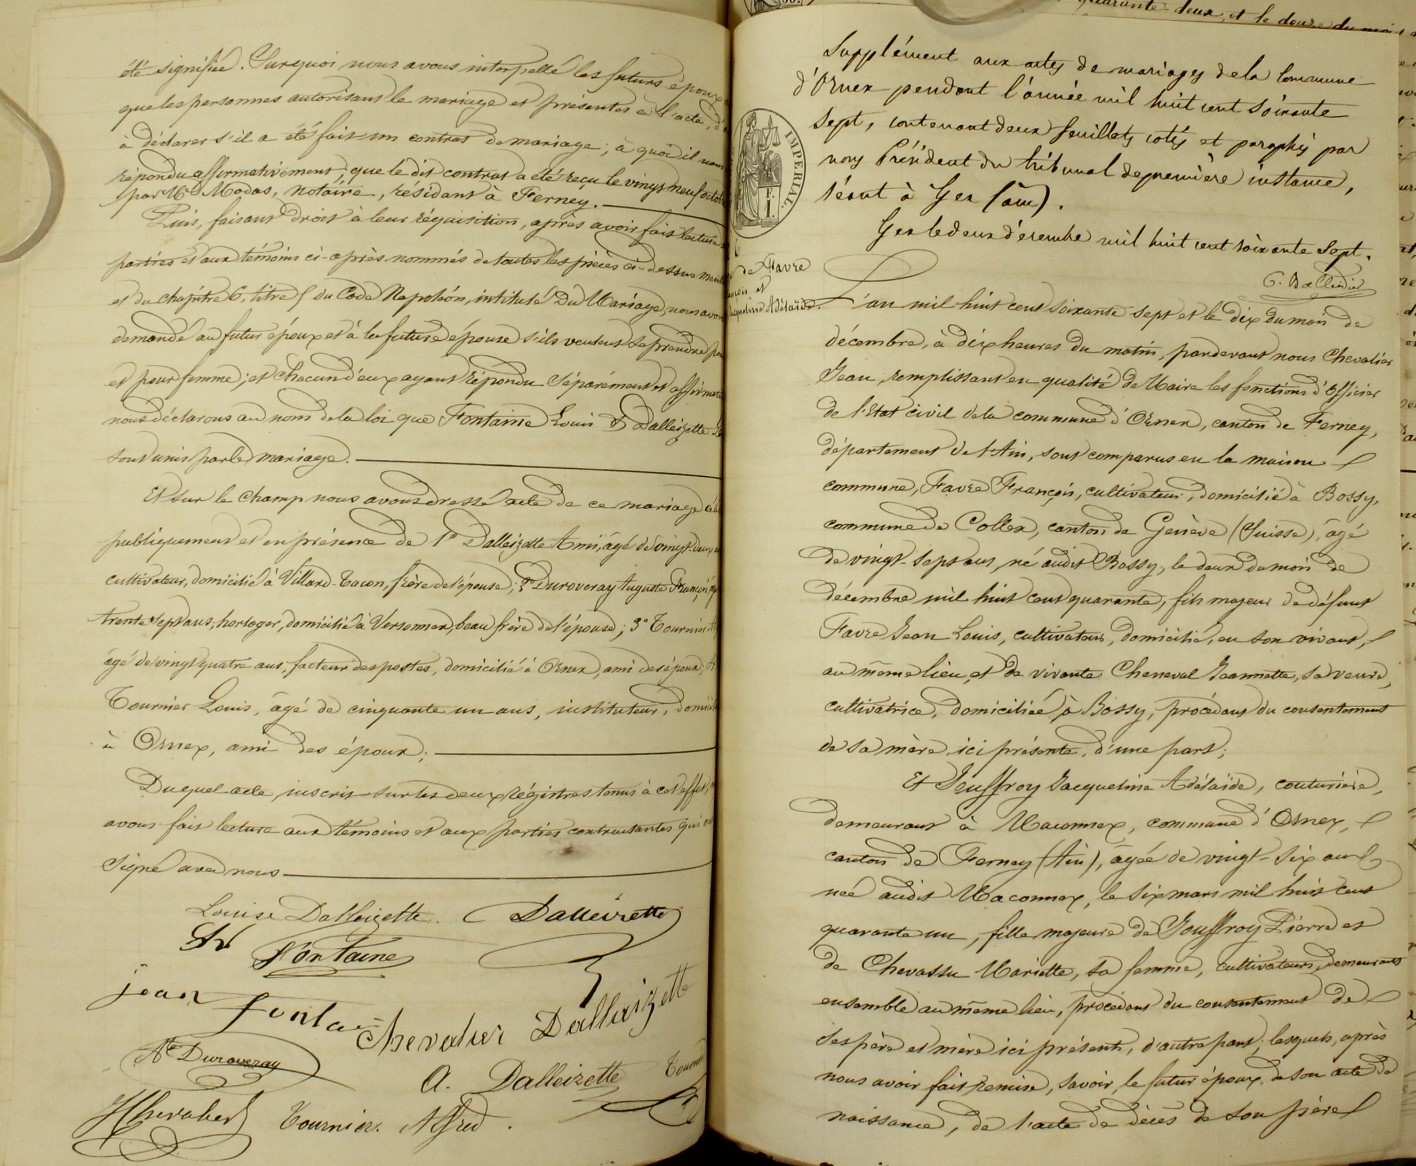 été signifié. Surquoi nous avons interpellé les futurs époux
que les personnes autorisant le mariage et présentes à l'acte,
à déclarer s'il a été fait un contrat de mariage ; à quoi il nous
répondu affirmativement, que le dit contrat a été reçu le vingt neuf octobre
par Me Modas, notaire, résidant à Ferney.
Puis, faisant droit à leur réquisition, après avoir fait lecture
parties et aux témoins ci-après nommés de toutes les pièces ci-dessus
et du chapitre 6, titre 5 du Code Napoléon, intitulé Du Mariage, nous avons
demandé au futur époux et à la future épouse s'ils veulent se prendre pour
et pour femme ; et chacun d'eux ayant répondu séparément et affirmativement
nous déclarons au nom de la loi que Fontaine Louis & Dalleizette
sont unis par le mariage.
Et sur le champ nous avons dressé acte de ce mariage
publiquement et en présence de 1° Dalleizette Ami, âgé de vingt-deux
cultivateur, domicilié à Villard-Tacon, frère de l'épouse ; 2° Duroveray Auguste François,
trente sept ans, horloger, domicilié à Versonnex, beau frère de l'épouse ; 3° Tournier
âgé de vingt quatre ans, facteur des postes, domicilié à Ornex, ami des époux,
Tournier Louis, âgé de cinquante un ans, instituteur, domicilié
à Ornex, ami des époux ;
Duquel acte, inscrit sur les deux régistres tenus à cet effet,
avons fait lecture aux témoins et aux parties contractantes qui
signé avec nous
Louise Dalleizette. Dalleizette
Fontaine
jean Fontai
Chevalier Dallaizette
Ate Duroveray
A. Dalleizette Tourni
JChevalier Tournier. Alfred.
quarante-deux, et le douze du mois
Supplément aux actes de mariages de la Commune
d'Ornex pendant l'année mil huit cent soixante
sept, contenant deux feuillets cotés et paraphés par
nous Président du tribunal de première instance,
séant à Gex (ain).
Gex le deux décembre mil huit cent soixante sept.
IMPERIAL.
F. 1.
de Favre
François et
Jacqueline Adélaïde.
L'an mil huit cent soixante sept et le dix du mois de
décembre, à dix heures du matin, pardevant nous Chevalier
Jean, remplissant en qualité de Maire les fonctions d'Officier
de l'Etat civil de la commune d'Ornex, canton de Ferney,
département de l'Ain, sont comparus en la maison
commune, Favre François, cultivateur, domicilié à Bossy,
commune de Collex, canton de Genève (Suisse), âgé
de vingt-sept ans, né audit Bossy, le deux du mois de
décembre mil huit cent quarante, fils majeur de défunt
Favre Jean Louis, cultivateur, domicilié, en son vivant,
au même lieu, et de vivante Cheneval Jeannette, sa veuve,
cultivatrice, domiciliée à Bossy, procédant du consentement
de sa mère ici présente, d'une part ;
Et Jeuffroy Jacqueline Adélaïde, couturière,
demeurant à Maconnex, commune d'Ornex,
canton de Ferney (Ain), âgée de vingt-six ans,
née audit Maconnex, le six mars mil huit cent
quarante un, fille majeure de Jouffroy Pierre et
de Chevassu Mariette, sa femme, cultivateurs, demeurant
ensemble au même lieu, procédant du consentement de
ses père et mère ici présents, d'autre part, lesquels, après
nous avoir fait remise, savoir, le futur époux de son acte de
naissance, de l'acte de décès de son père